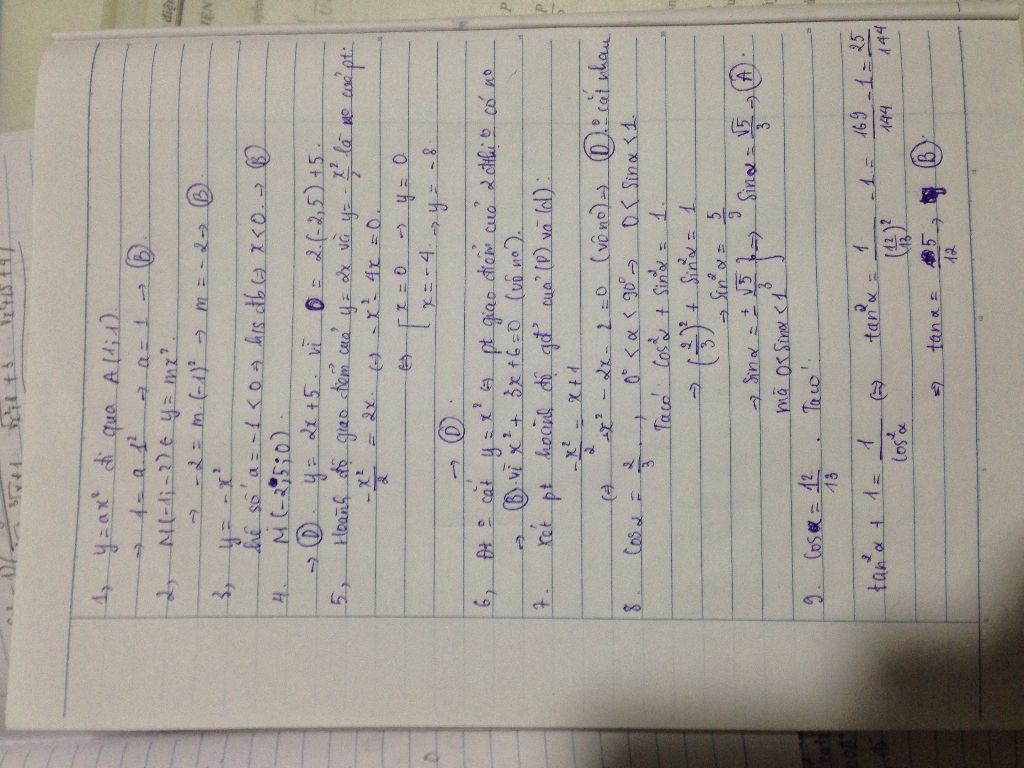 1, y = ax² đi qua A(1;1)
→ 1 = a.1² → a = 1 → Ⓑ
2, M(-1;-2) ∈ y = mx².
→ -2 = m(-1)² → m = -2 → Ⓑ.
3, y = -x²
hệ số a = -1 < 0 → hs đb ⇔ x < 0. → Ⓑ
4. M(-2,5;0).
→ Ⓓ. y = 2x + 5. vì 0 = 2.(-2,5) + 5.
5, Hoành độ giao điểm của y = 2x và y = -x²/2 là no của pt:
-x²/2 = 2x. ⇔ -x² - 4x = 0.
⇔ [ x = 0 → y = 0
x = -4. → y = -8
→ Ⓓ
6, cắt y = x² ⇔ pt giao điểm của 2 có no
→ Ⓑ. vì x² + 3x + 6 = 0 (vô no).
7. xét pt hoành độ gđ của (P) và (d):
-x²/2 = x + 1
⇔ -x² - 2x - 2 = 0 (vô no) → Ⓓ. cắt nhau
8. cosα = 2/3, 0° < α < 90° → 0 < sinα < 1.
Ta có: cos²α + sin²α = 1.
→ (2/3)² + sin²α = 1
→ sin²α = 5/9
→ sinα = ± √5/3 } → sinα = √5/3 → Ⓐ.
mà 0 ≤ sinα < 1
9. cosα = 12/13. Ta có:
tan²α + 1 = 1/cos²α ⇔ tan²α = 1/(12/13)² - 1 = 169/144 - 1 = 25/144
→ tanα = 5/12 → Ⓑ.